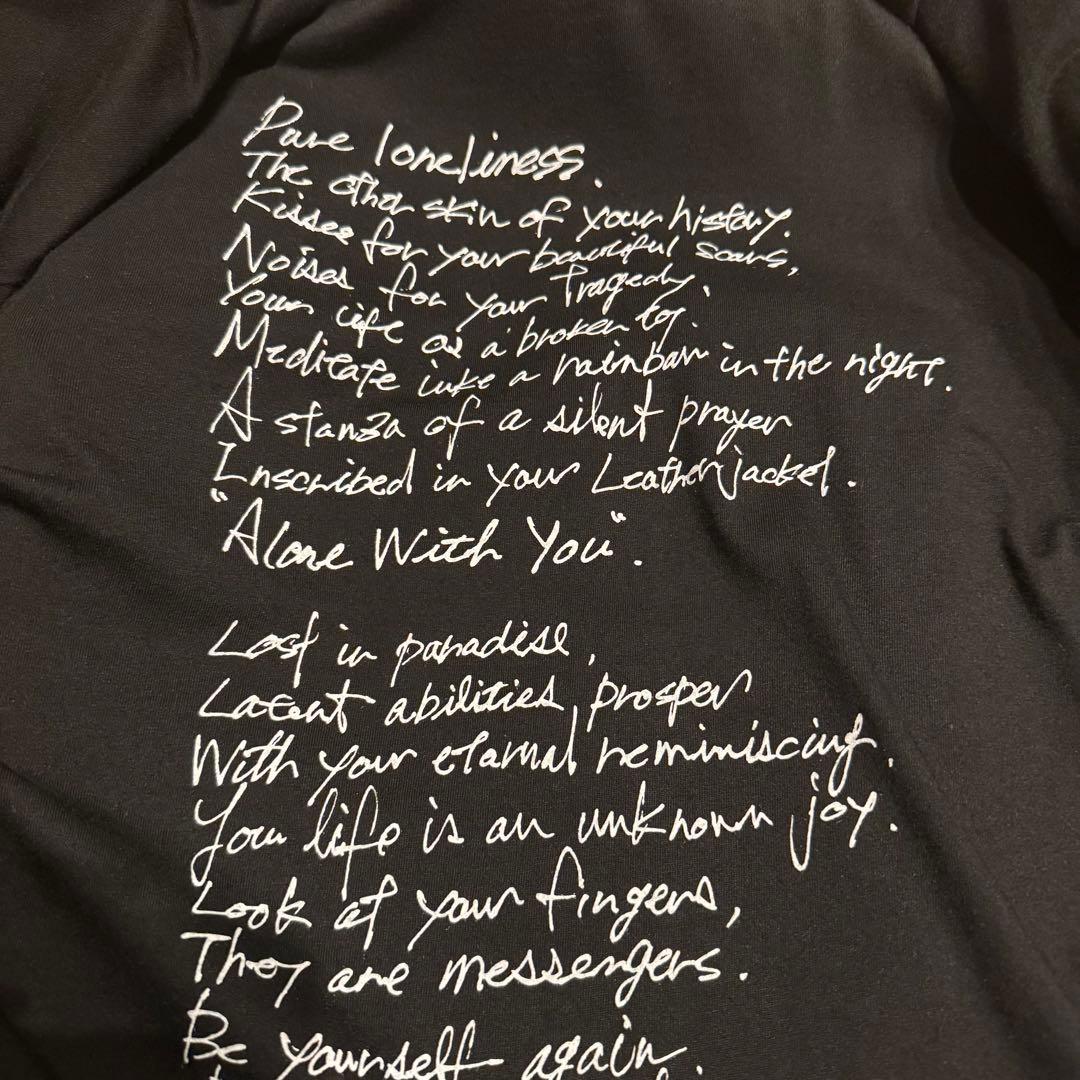 Pure loneliness.
The other skin of your history.
Kisses for your beautiful scars,
Noises for your Tragedy.
Your life as a broken toy.
Meditate like a rainbow in the night.
A stanza of a silent prayer
Inscribed in your Leather jacket.
"Alone With You".
Lost in paradise,
Latent abilities prosper
With your eternal reminiscing.
Your life is an unknown joy.
Look at your fingers,
They are messengers.
Be yourself again